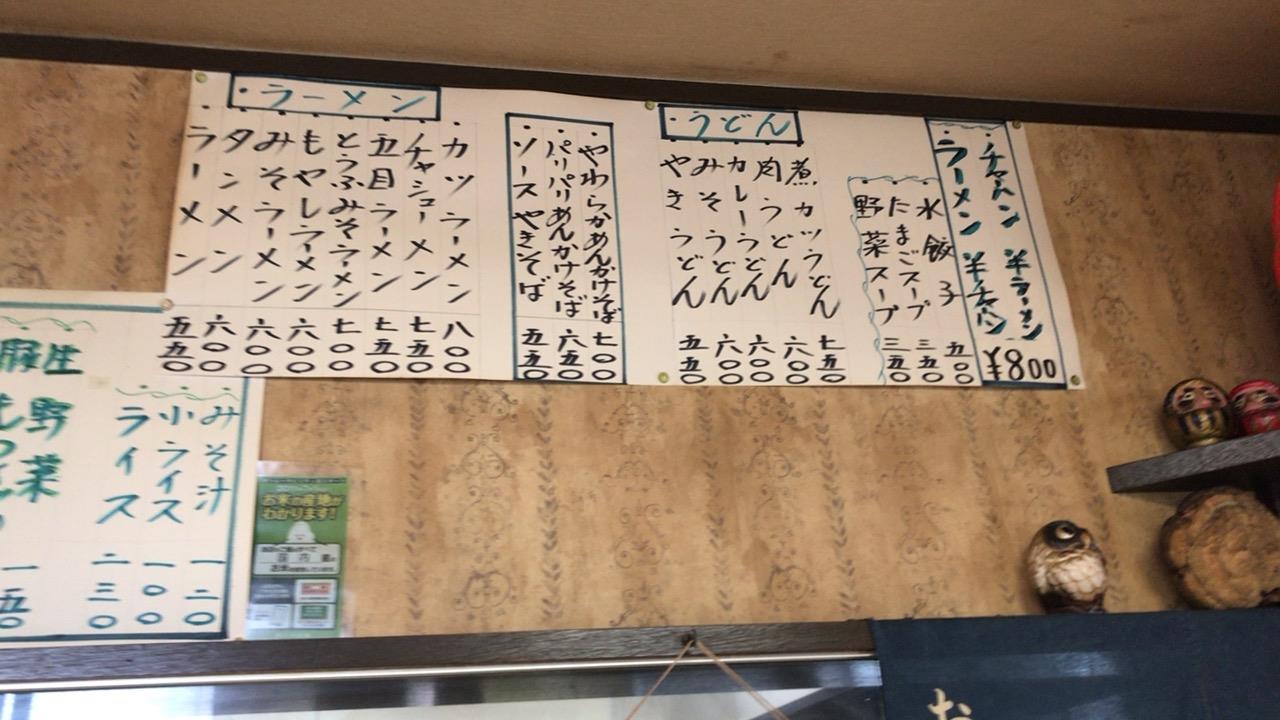 チャーハン 半ラーメン
ラーメン 半チャーハン
¥800
水餃子 五〇〇
たまごスープ 三五〇
野菜スープ 三五〇
・うどん
煮カツうどん 七五〇
肉うどん 六〇〇
カレーうどん 六〇〇
みそうどん 六〇〇
やきうどん 五五〇
やわらかあんかけそば 七〇〇
パリパリあんかけそば 六五〇
ソースやきそば 五五〇
・ラーメン
カツラーメン 八〇〇
チャシューメン 七五〇
五目ラーメン 七五〇
とうふみそラーメン 七〇〇
もやしラーメン 六〇〇
みそラーメン 六〇〇
タンメン 六〇〇
ラーメン 五五〇
みそ汁 一二〇
小ライス 一〇〇
ライス 二三〇
野菜
お米の産地が
わかります!
国内産
お